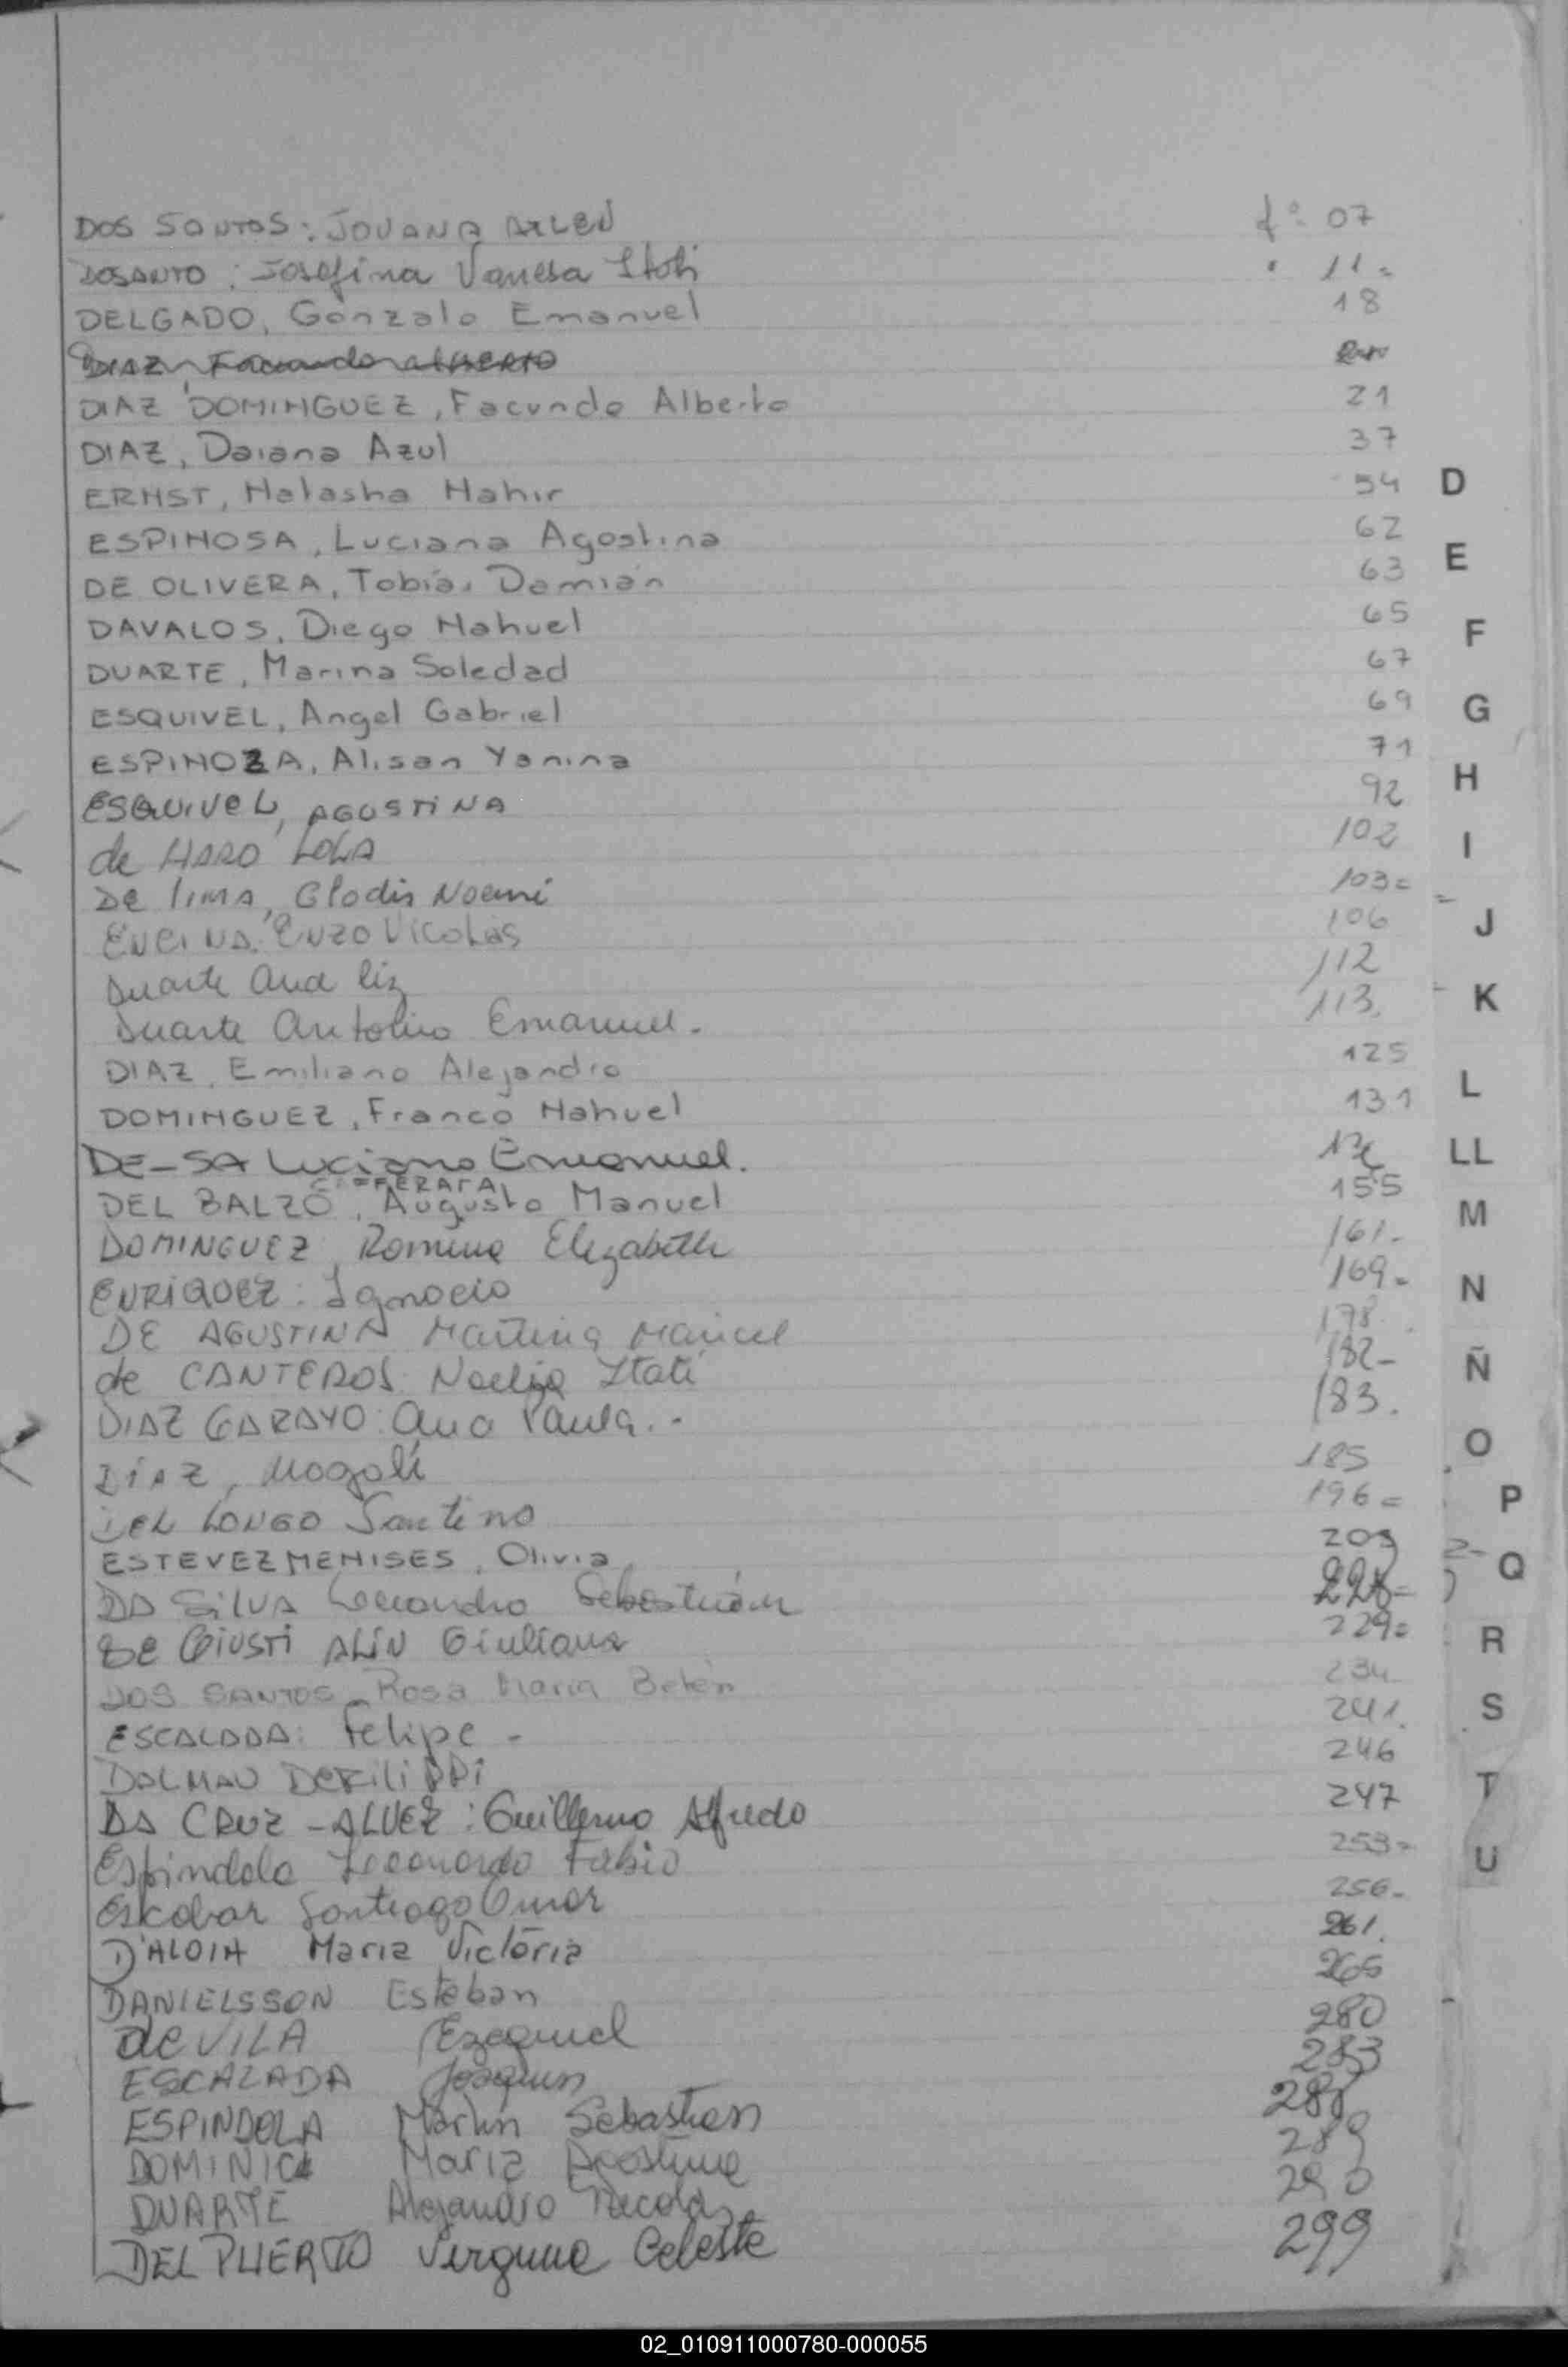 DOS SANTOS: JOVANA AILEN fº 07
DOSANTO: Josefina Vanesa Itati " 11=
DELGADO, Gonzalo Emanuel 18
DIAZ, Facundo ALBERTO
DIAZ DOMINGUEZ, Facundo Alberto 21
DIAZ, Daiana Azul 37
ERNST, Natasha Nahir 54
ESPINOSA, Luciana Agostina 62
DE OLIVERA, Tobías Damián 63
DAVALOS, Diego Nahuel 65
DUARTE, Marina Soledad 67
ESQUIVEL, Angel Gabriel 69
ESPINOZA, Alison Yanina 71
ESQUIVEL, AGUSTINA 92
de HARO LOLA 102
De LIMA, Glodis Noemi 103=
ENCINA: ENZO NICOLÁS 106
Duarte Ana Liz 112
Duarte Antonio Emanuel. 113.
DIAZ, Emiliano Alejandro 125
DOMINGUEZ, Franco Nahuel 131
DE-SA Luciano Emanuel.
CIFFERATA
DEL BALZO, Augusto Manuel 155
DOMINGUEZ, Romina Elizabeth 161-
ENRIQUEZ: Ignacio 169-
DE AGUSTINA Martina Maricel 178
de CANTEROS Noelia Itatí 182-
DIAZ GARAYO: Ana Paula.- 183.
DÍAZ, Magalí 185
DEL LONGO Santino 196=
ESTEVEZ MENISES, Olivia 203
DA SILVA Leandro Sebastián 228-
De GIUSTI ALIN Giuliana 229=
DOS SANTOS Rosa Maria Belén 234
ESCALADA: Felipe - 241.
DALMAU DEFILIPPI 246
DA CRUZ - ALVEZ: Guillermo Alfredo 247
Espindola Leonardo Fabio 253-
Escobar Santiago Omar 256-
D'ALOIA Maria Victoria 261.
DANIELSSON Esteban 265
de VILA Ezequiel 280
ESCALADA Joaquin 283
ESPINDOLA Martin Sebastian 288
DOMINICI Maria Agostina 289
DUARTE Alejandro Nicolas 290
DEL PUERTO Virginia Celeste 299
D
E
F
G
H
I
J
K
L
LL
M
N
Ñ
O
P
Q
R
S
T
U
02_010911000780-000055